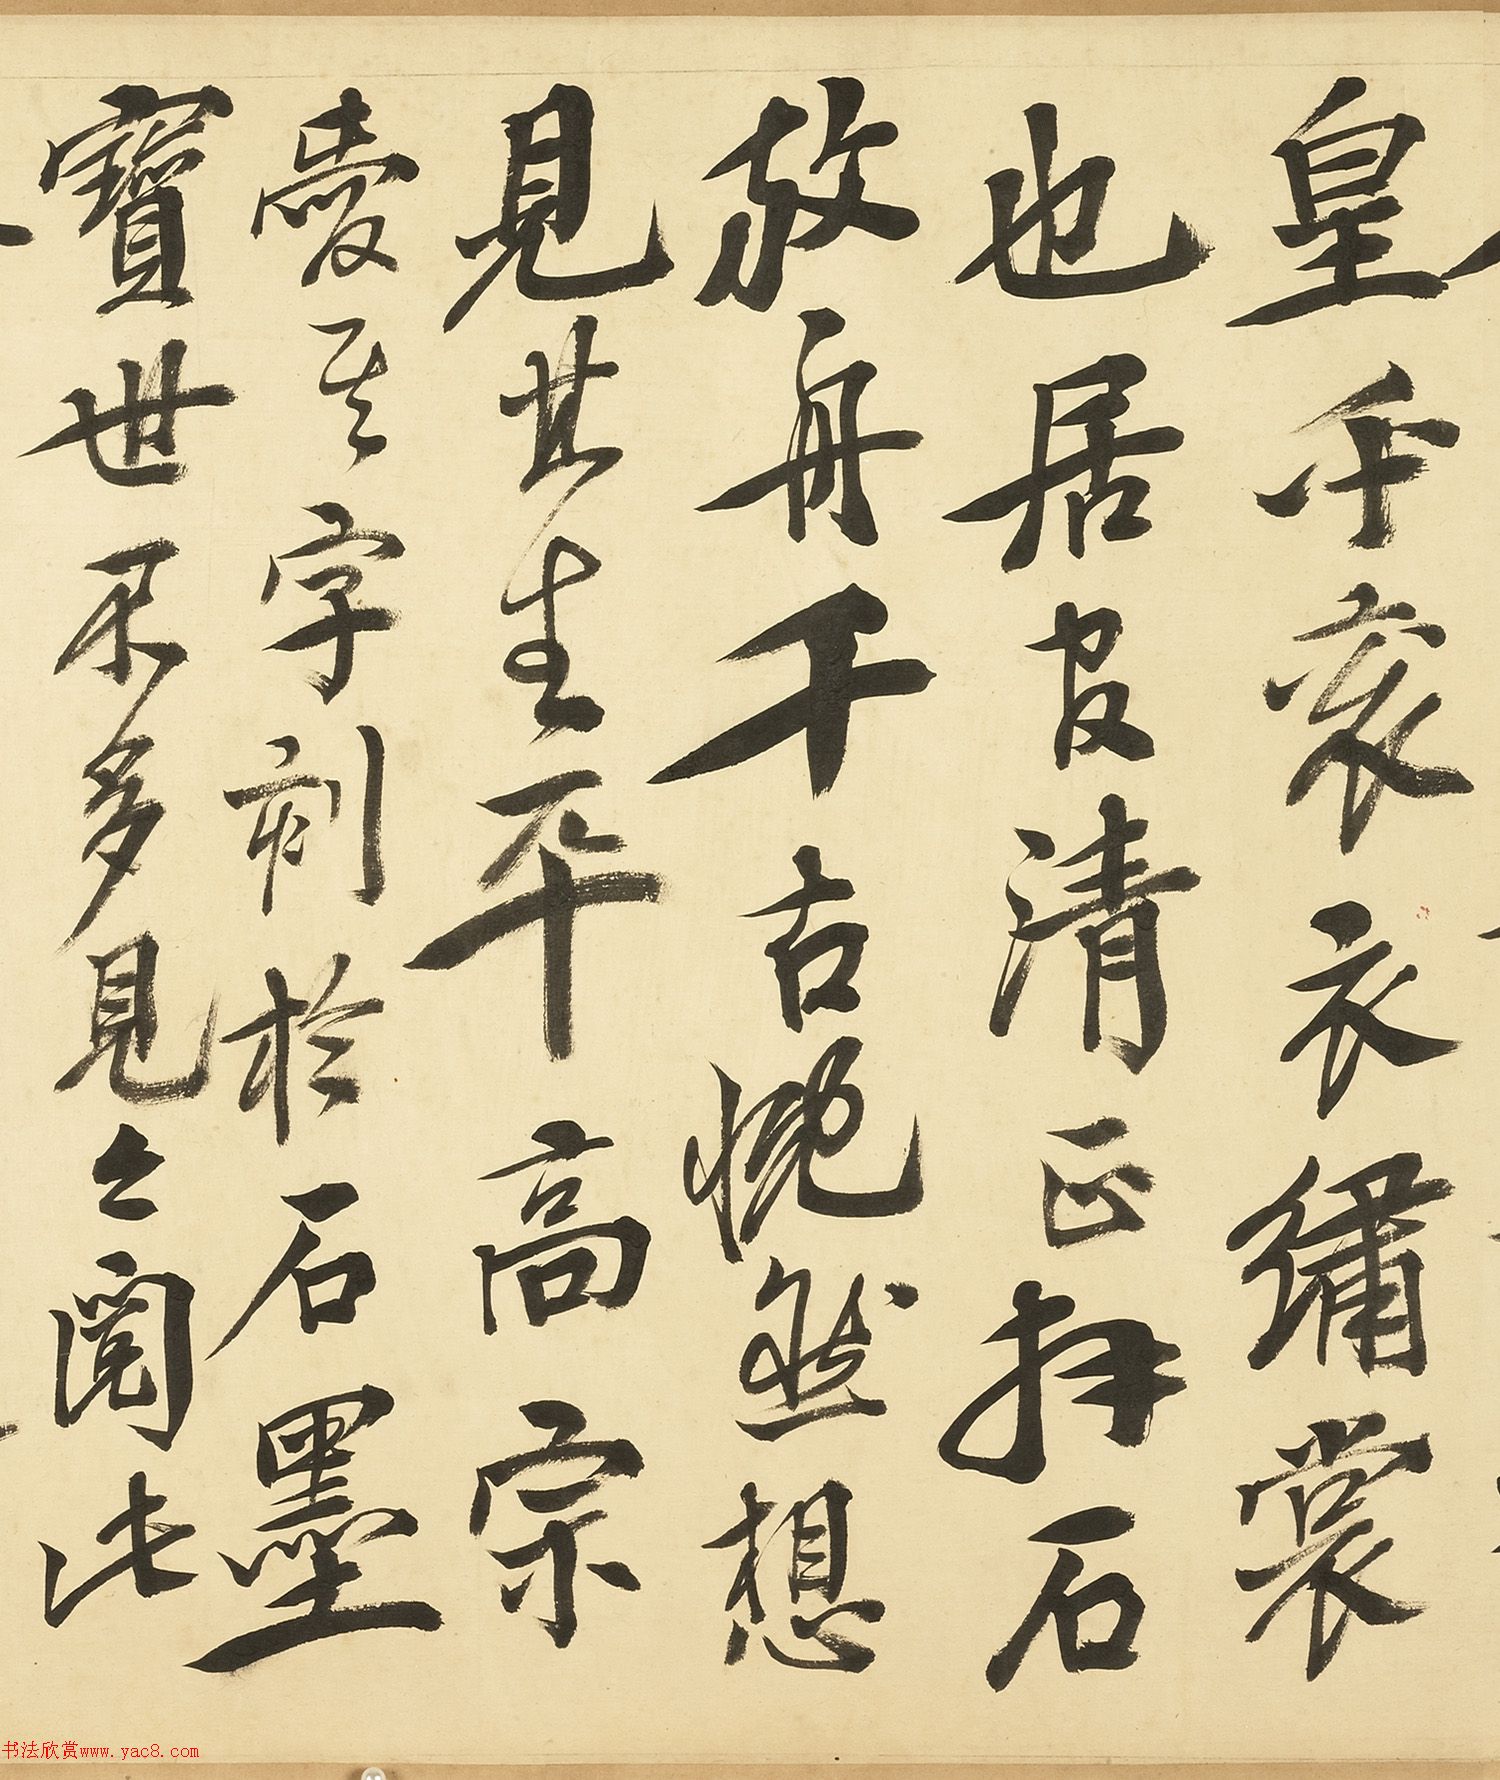 皇千裘衣繡裳
也居官清正拜石
放舟千古恍然想
見其生平高宗
愛其字刻於石墨
寶世不多見之閱此
书法欣赏www.yac8.com